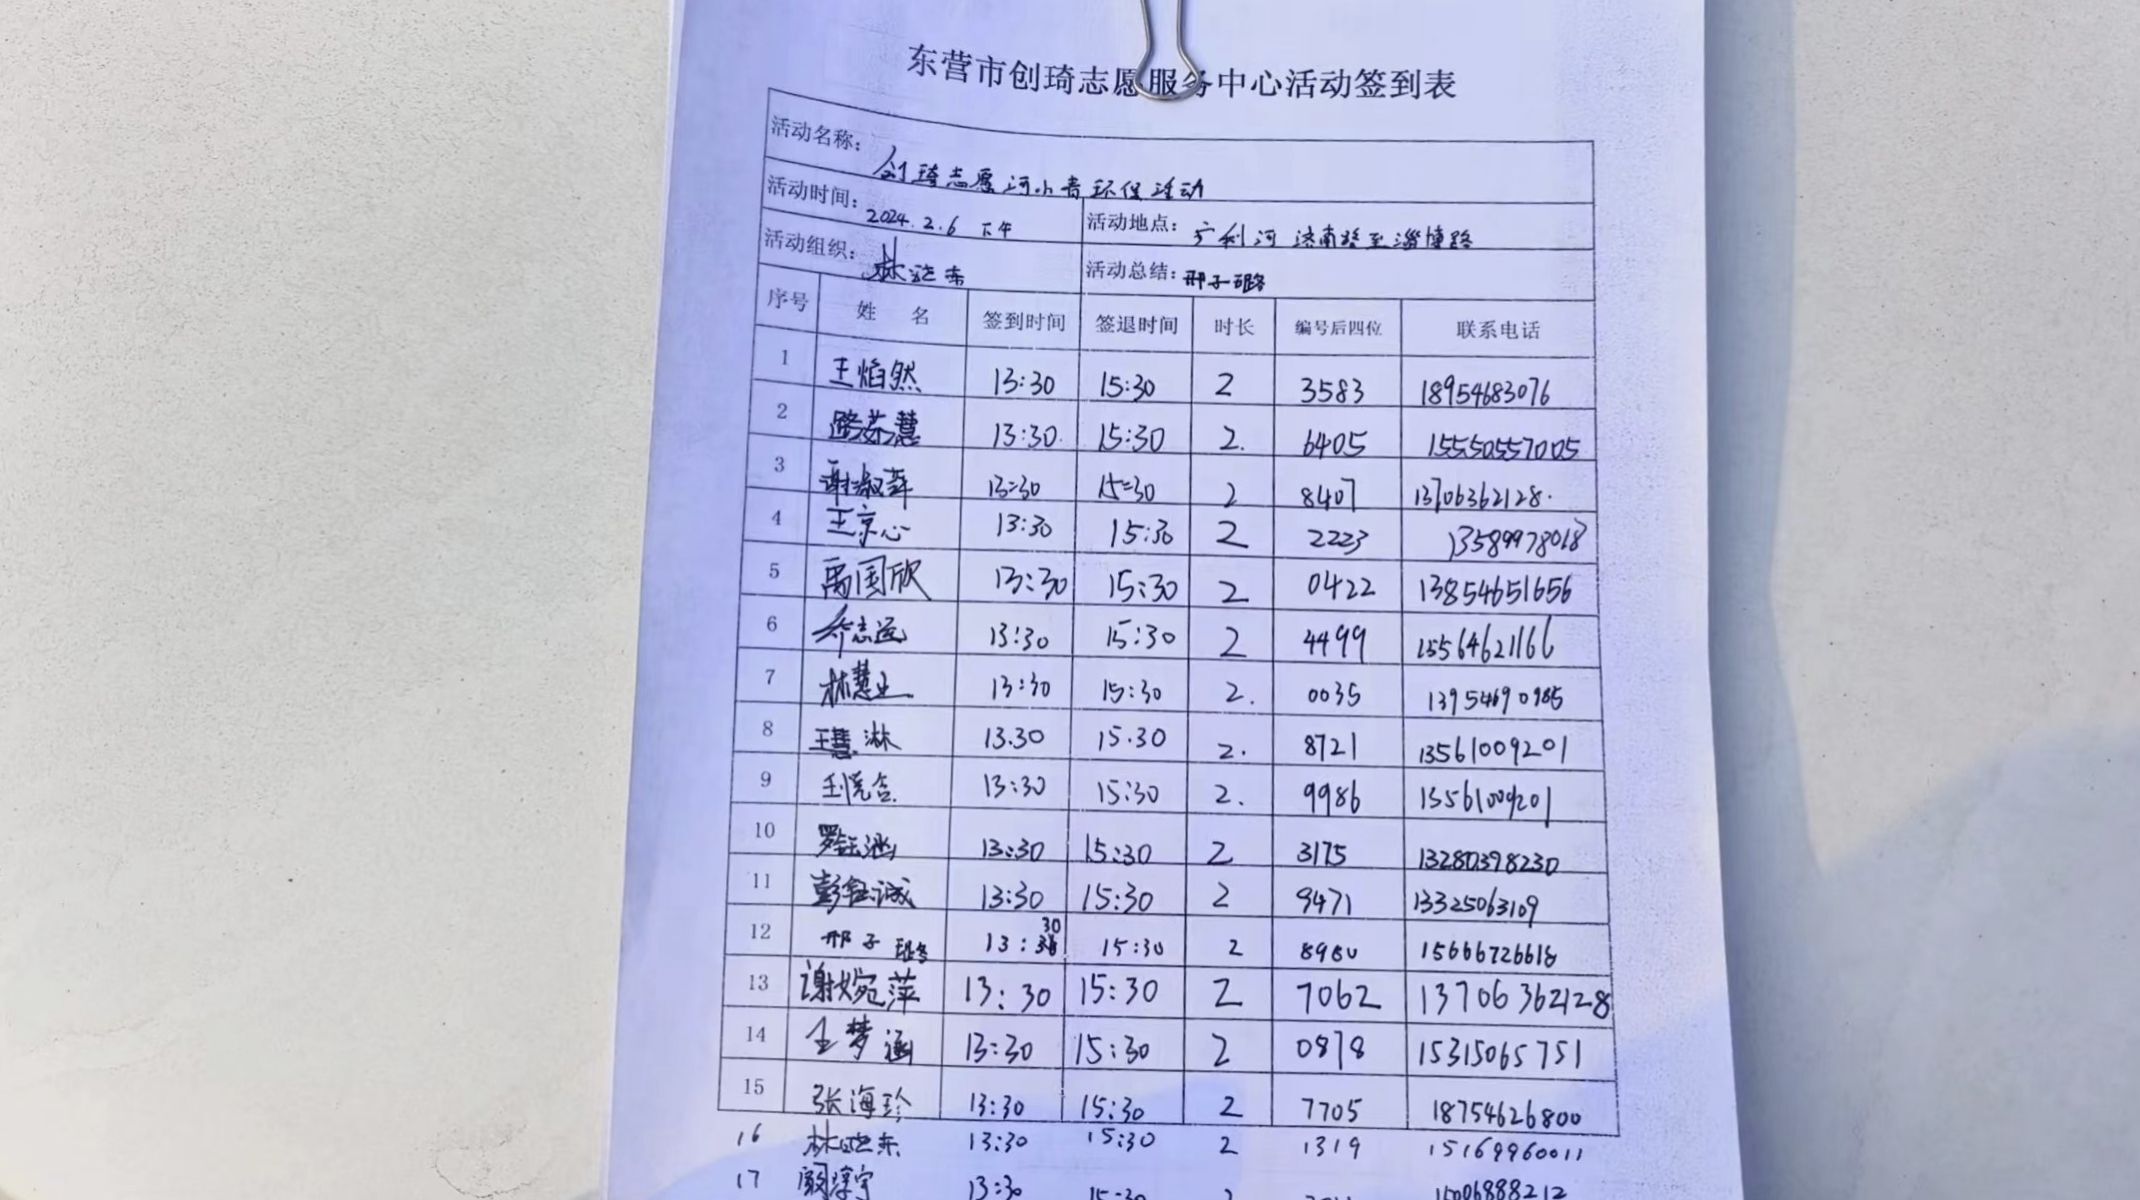 东营市创琦志愿服务中心活动签到表
活动名称： 创琦志愿河小青环保活动
活动时间： 2024.2.6 下午 活动地点： 广利河 济南路至淄博路
活动组织： 林晓东 活动总结： 邢子璐
序号 姓 名 签到时间 签退时间 时长 编号后四位 联系电话
1 王焰然 13:30 15:30 2 3583 18954683076
2 路荞慧 13:30 15:30 2. 6405 15550557005
3 谢淑萍 13:30 15:30 2 8407 13706362128.
4 王京心 13:30 15:30 2 2223 13589978068
5 禹国欣 13:30 15:30 2 0422 13854651656
6 乔志远 13:30 15:30 2 4499 15564621166
7 林慧业 13:30 15:30 2. 0035 13954690985
8 王慧淋 13.30 15.30 2. 8721 13561009201
9 13:30 15:30 2. 9986 13561009201
10 罗钰涵 13:30 15:30 2 3175 13280398230
11 彭钰诚 13:30 15:30 2 9471 13325063109
12 邢子璐 13:30 15:30 2 8980 15666726618
13 谢婉萍 13:30 15:30 2 7062 13706362128
14 王梦涵 13:30 15:30 2 0878 15315065751
15 张海珍 13:30 15:30 2 7705 18754626800
16 林晓东 13:30 15:30 2 1319 15169960011
17 13:30 15:30 2 15006888212